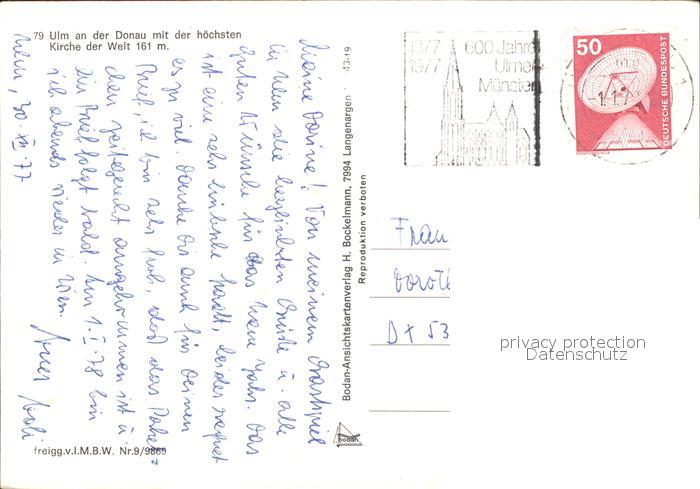 79 Ulm an der Donau mit der höchsten
Kirche der Welt 161 m.
Meine Dorine! Von meinem Gastspiel
in Ulm die herzlichsten Grüße u. alle
guten Wünsche für das Neue Jahr. Das
ist eine sehr hübsche Stadt, leider regnet
es zu viel. Danke Dir auch für Deinen
Brief, ich bin sehr froh, daß das Paket
zeitgerecht angekommen ist u.
ein Brief folgt bald. Am 1.I.78 bin
ich abends wieder in Wien.
Ulm, 30.XII.77
freigg.v.I.M.B.W. Nr.9/9869
43-19
Bodan-Ansichtskartenverlag H. Bockelmann, 7994 Langenargen
Reproduktion verboten
bodan
1377
1977
600 Jahre
Ulmer
Münster
-1.1.7
50
DEUTSCHE BUNDESPOST
Frau
Dorot
D + 53
privacy protection
Datenschutz